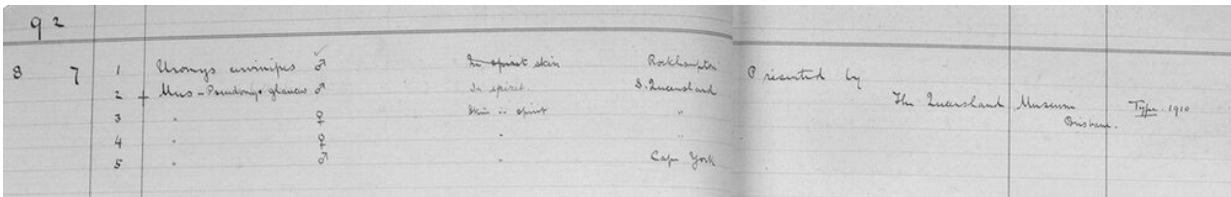 92
8 7 1 Uromys cervinipes ♂ In spirit skin Rockhampton Presented by
2 + Mus - Pseudomys glaucus ♂ In spirit. S. Queensland The Queensland Museum Type. 1910
3 " ♀ Skin in spirit " Brisbane.
4 " ♀ " "
5 " ♂ " Cape York